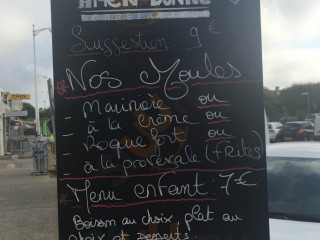 Suggestion : 9 €
* Nos Moules
- Marinière ou
- à la crème ou
- Roquefort ou
- à la provençale (+ frites)
* Menu enfant : 7€
Boisson au choix, plat au
choix et desserts